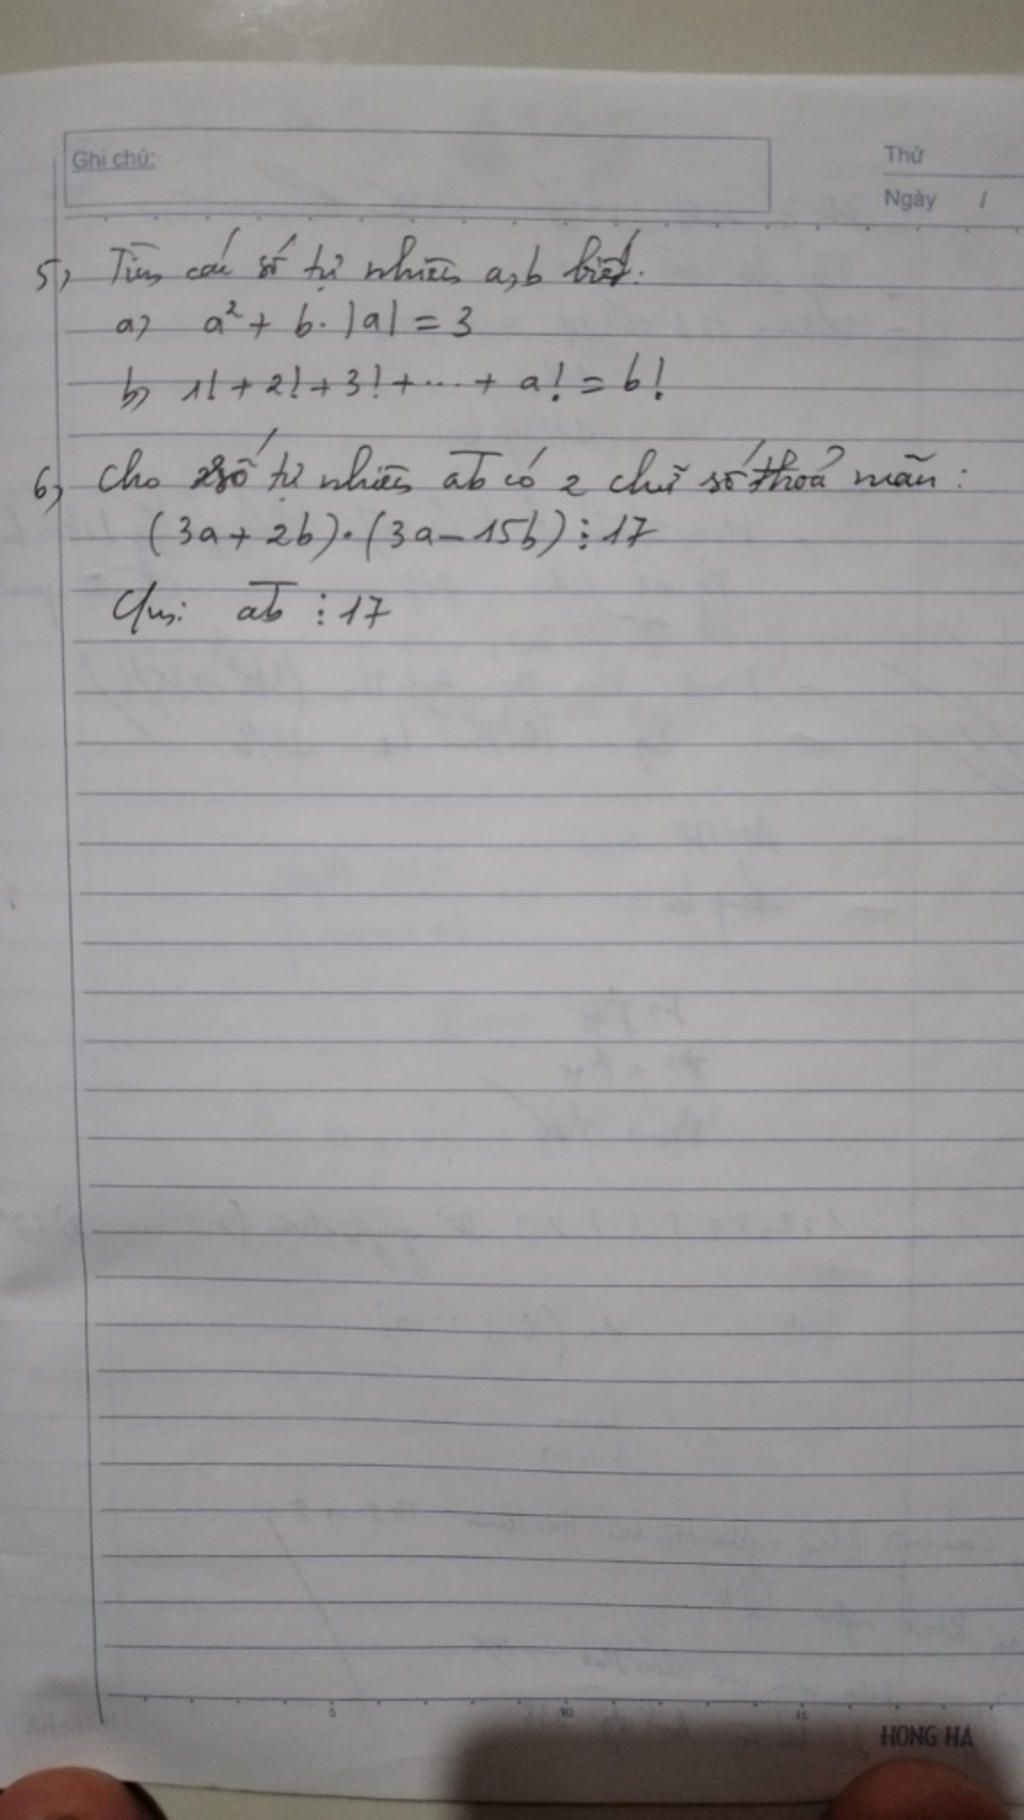 Ghi chú:
Thứ
Ngày /
5, Tìm các số tự nhiên a,b biết:
a, a² + b. |a| = 3
b, 1! + 2! + 3! + ... + a! = b!
6, Cho số tự nhiên ab̅ có 2 chữ số thoả mãn:
(3a + 2b).(3a - 15b) ⋮ 17
Cm: ab̅ ⋮ 17
5 10 15
HONG HA